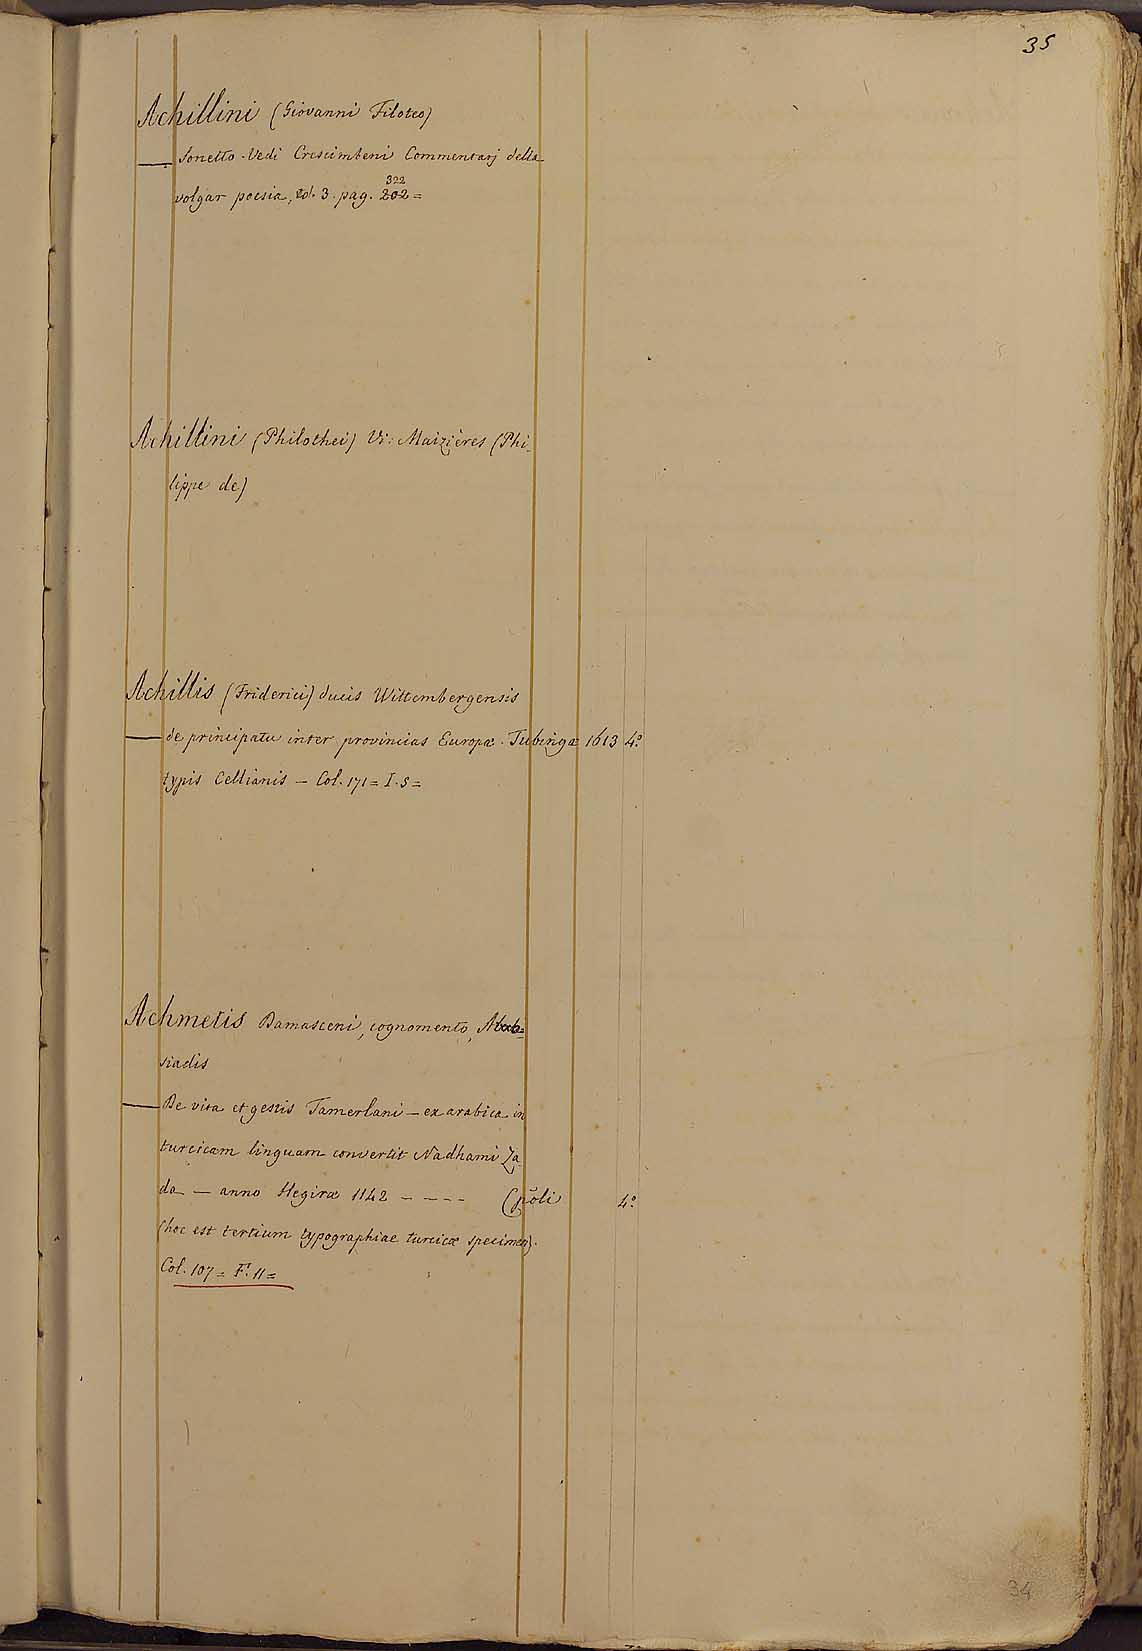 35
Achillini (Giovanni Filoteo)
— Sonetto. Vedi Crescimbeni Commentarj della
322
volgar poesia, vol. 3. pag. 202=
Achillini (Philothei) Vi: Maizières (Phi-
lippe de)
Achillis (Friderici) ducis Wittembergensis
— de principatu inter provincias Europæ. Tubingæ 1613 4.º
typis Cellianis — Col. 171 = I. 5 =
Achmetis Damasceni, cognomento,
siadis
— De vita et gestis Tamerlani — ex arabica in
turcicam linguam convertit Nadhami Za
da — anno Hegiræ 1142 - - - - (poli 4.º
(hoc est tertium typographiae turcicæ specimen).
Col. 107 = F. 11 =
34